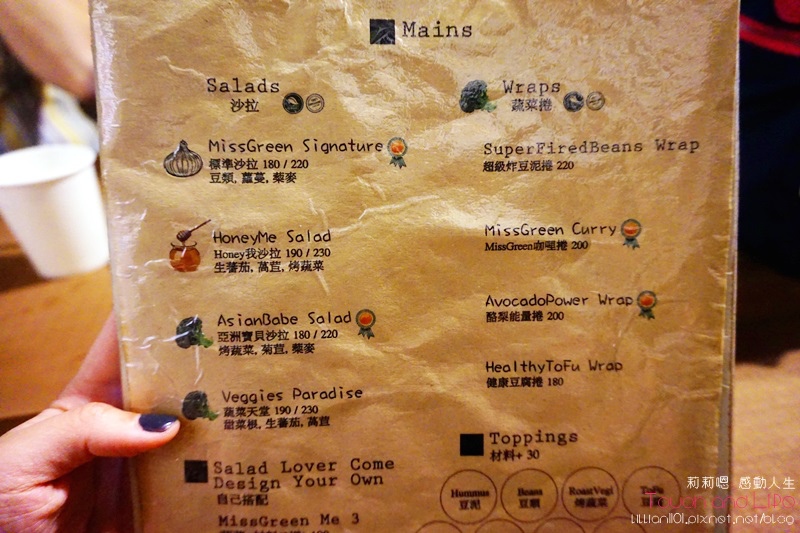 Mains
Salads
沙拉
MissGreen Signature
標準沙拉 180 / 220
豆類, 蘿蔓, 藜麥
HoneyMe Salad
Honey我沙拉 190 / 230
生蕃茄, 萵苣, 烤蔬菜
AsianBabe Salad
亞洲寶貝沙拉 180 / 220
烤蔬菜, 菊苣, 藜麥
Veggies Paradise
蔬菜天堂 190 / 230
甜菜根, 生蕃茄, 萵苣
Salad Lover Come
Design Your Own
自己搭配
MissGreen Me 3
Wraps
蔬菜捲
SuperFiredBeans Wrap
超級炸豆泥捲 220
MissGreen Curry
MissGreen咖哩捲 200
AvocadoPower Wrap
酪梨能量捲 200
HealthyToFu Wrap
健康豆腐捲 180
Toppings
材料+ 30
Hummus
豆泥
Beans
豆類
RoastVegi
烤蔬菜
ToFu
莉莉嗯 感動人生
Touch and Life
LILLian1101.pixnet.net/blog